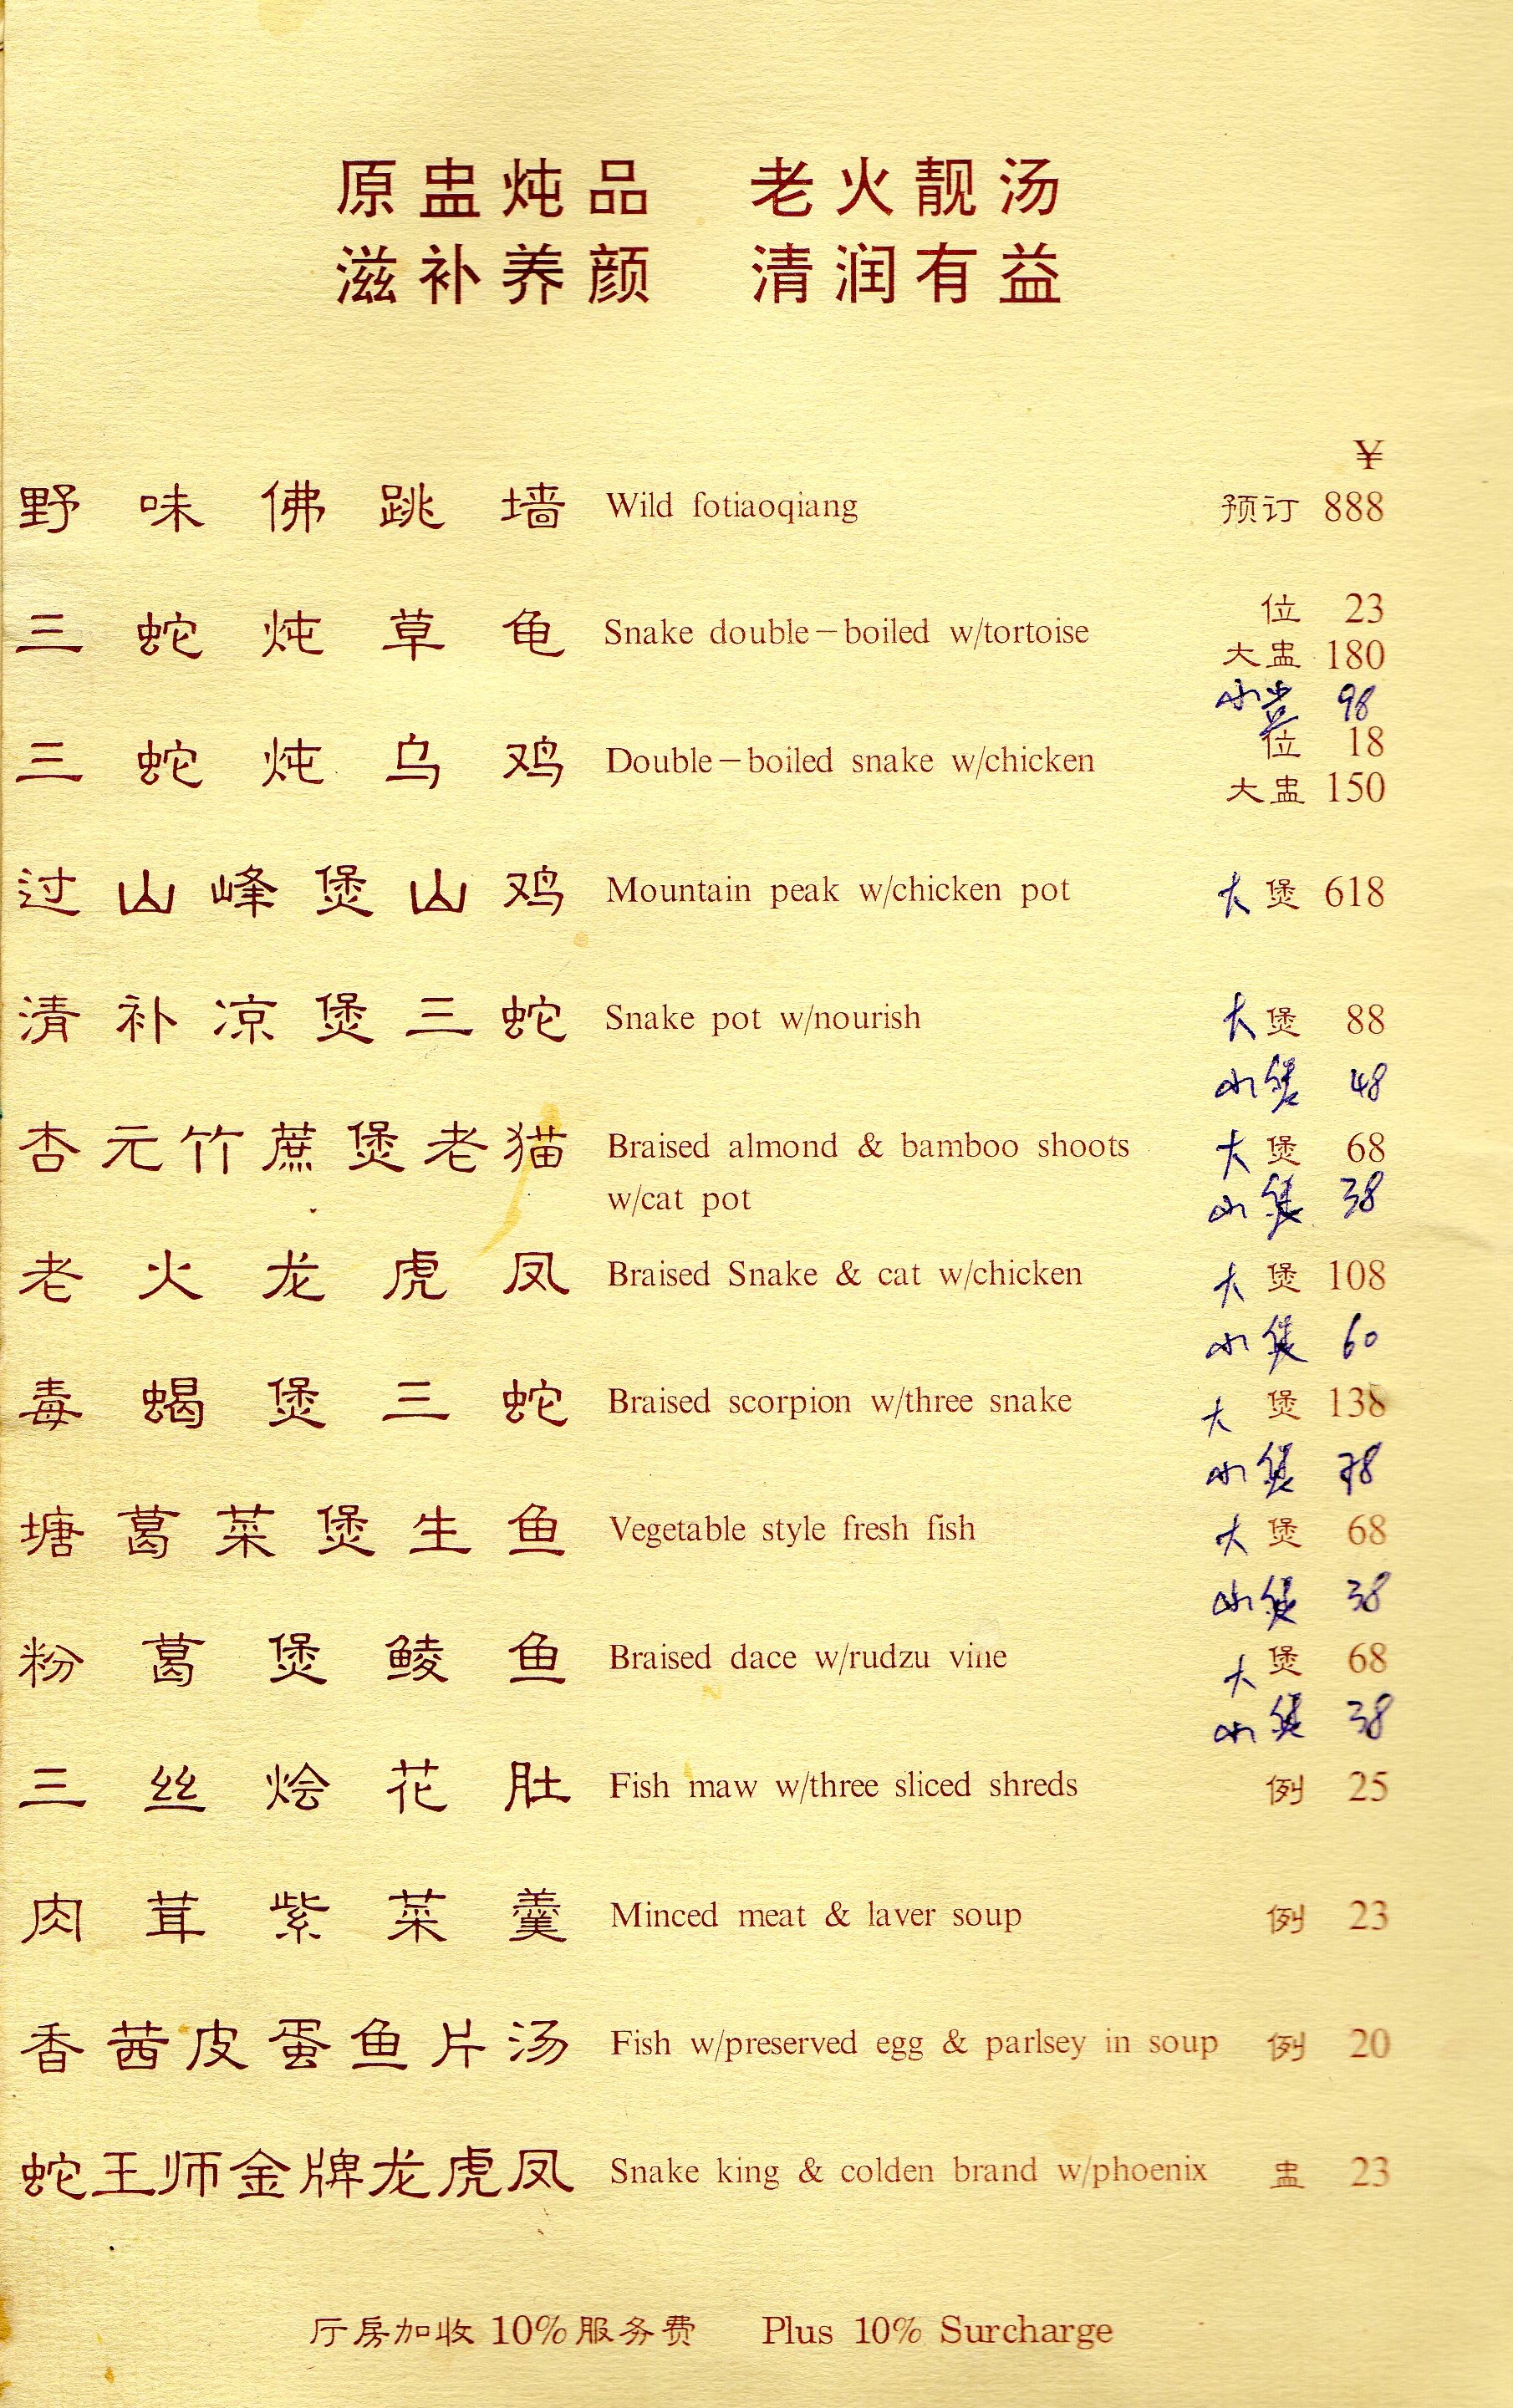 原盅炖品 老火靓汤
滋补养颜 清润有益
¥
野味佛跳墙 Wild fotiaoqiang 预订 888
三蛇炖草龟 Snake double-boiled w/tortoise 位 23
大盅 180
小盅 98
三蛇炖乌鸡 Double-boiled snake w/chicken 位 18
大盅 150
过山峰煲山鸡 Mountain peak w/chicken pot 大煲 618
清补凉煲三蛇 Snake pot w/nourish 大煲 88
小煲 48
杏元竹蔗煲老猫 Braised almond & bamboo shoots 大煲 68
w/cat pot 小煲 38
老火龙虎凤 Braised Snake & cat w/chicken 大煲 108
小煲 60
毒蝎煲三蛇 Braised scorpion w/three snake 大煲 138
小煲 78
塘葛菜煲生鱼 Vegetable style fresh fish 大煲 68
小煲 38
粉葛煲鲮鱼 Braised dace w/rudzu vine 大煲 68
小煲 38
三丝烩花肚 Fish maw w/three sliced shreds 例 25
肉茸紫菜羹 Minced meat & laver soup 例 23
香茜皮蛋鱼片汤 Fish w/preserved egg & parlsey in soup 例 20
蛇王师金牌龙虎凤 Snake king & colden brand w/phoenix 盅 23
厅房加收10%服务费 Plus 10% Surcharge